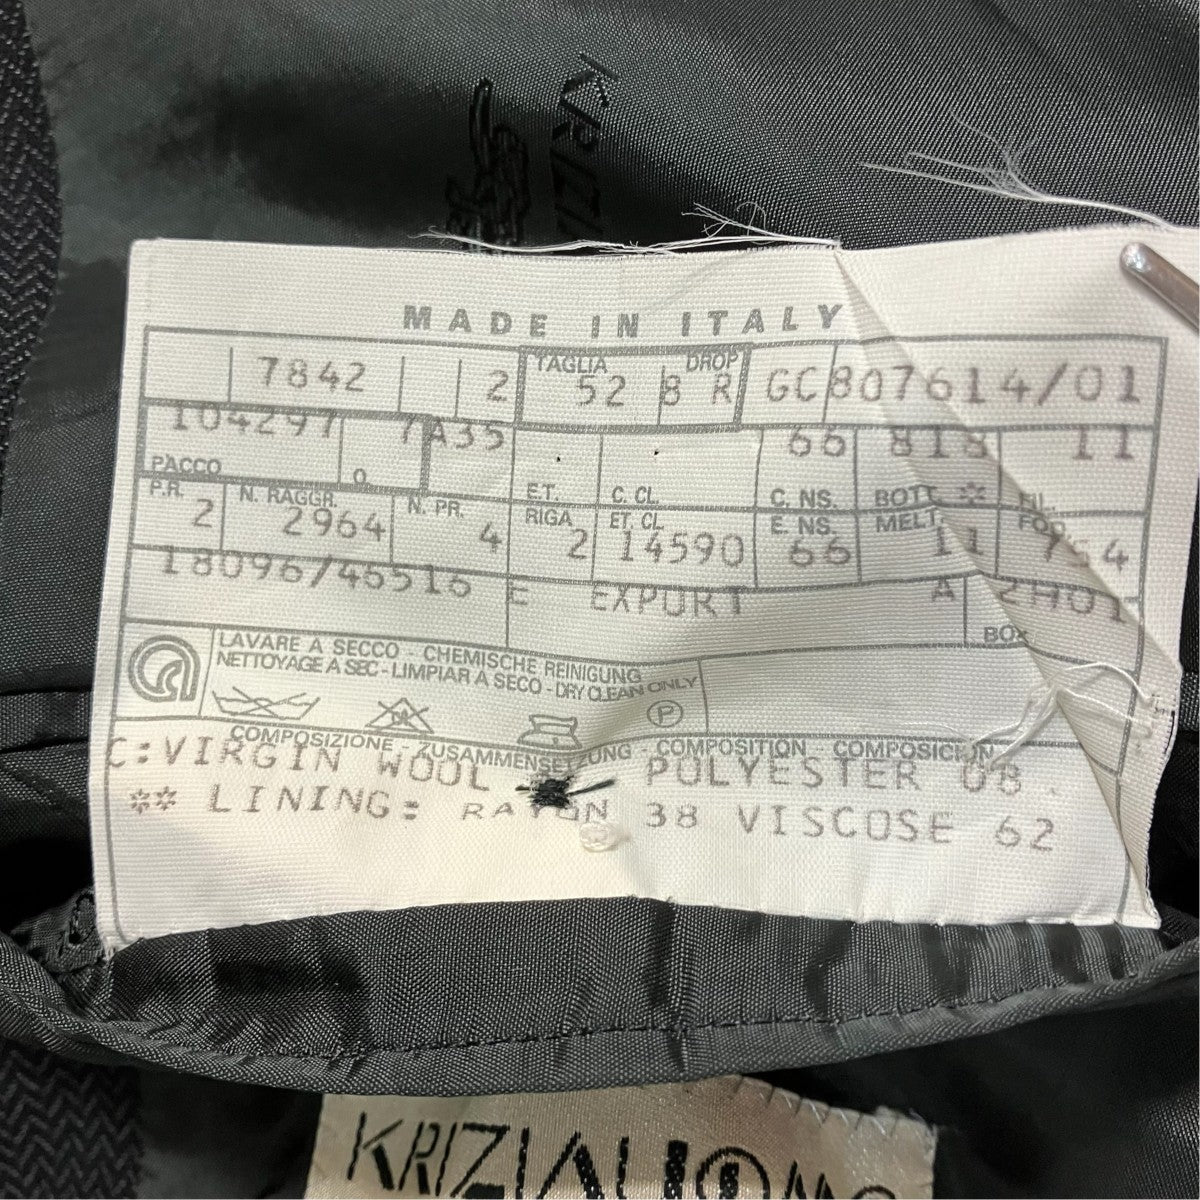 KRIZIA
MADE IN ITALY
7842 2 TAGLIA 52 DROP 8 R GC 807614/01
104297 7A35 66 818 11
PACCO O. ET. C. CL. C. NS. BOTT. * FIL.
P.R. 2 N. RAGGR. 2964 N. PR. 4 RIGA 2 ET. CL. 14590 E. NS. 66 MELT. 11 FOD.
18096/45516 E EXPORT A 2H01
BOX
LAVARE A SECCO - CHEMISCHE REINIGUNG
NETTOYAGE A SEC - LIMPIAR A SECO - DRY CLEAN ONLY
P
COMPOSIZIONE - ZUSAMMENSETZUNG - COMPOSITION - COMPOSICION
C:VIRGIN WOOL POLYESTER 08.
** LINING: RAYON 38 VISCOSE 62
KRIZIA UOMO